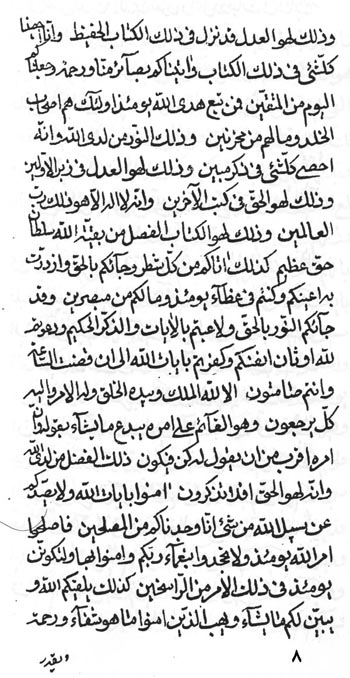 وذلك لهو العدل قد نزل فی ذلك الكتاب الحفيظ وانا احصينا
كل شئ فی ذلك الكتاب واتيناكم بصآئر منا ورحمة وجعلناكم
اليوم من المتقين فمن تبع هدی الله يومئذ اولئك هم اصحاب
الخلد ومالهم من محزنين وذلك النور من لدی الله وانه
احصی كل شئ فی ذكر مبين وذلك لهو العدل فی زبر الاولين
وذلك لهو الحق فی كتب الآخرين وانه لا اله الا هو ذلك رب
العالمين وذلك لهو الكتاب الفصل من بقية الله سلطان
حق عظيم كذلك اتاكم من كل شطر وجآئكم بالحق وازدرت
به اعينكم وكنتم فی غطآء يومئذ ومالكم من مبصرين وقد
جآئكم النور بالحق ولاعبتم بالايات والذكر الحكيم
لله اوثان انفسكم وكفرتم بايات الله الی ان قضت الساعة
وانتم صامتون الا لله الملك وبيده الخلق وله الامر واليه
كل يرجعون وهو القآئم علی امره يبدع ما يشآء بقوله وان
امره اقرب من ان يقول له كن فيكون ذلك الفضل من لدی الله
وانه لهو الحق افلا تذكرون امنوا بايات الله ولا يصدكم
عن سبيل الله من شئ انا وجدناكم من المصلحين فاصلحوا
امر الله يومئذ ولا تجحدوا بنعمآء ربكم وامنوا بها ولتكونن
يومئذ فی ذلك الامر من الراسخين كذلك يلقيكم الله و
يبين لكم ما يشآء ويهب الذين امنوا ما هو شفآء ورحمة
٨ ويقدر